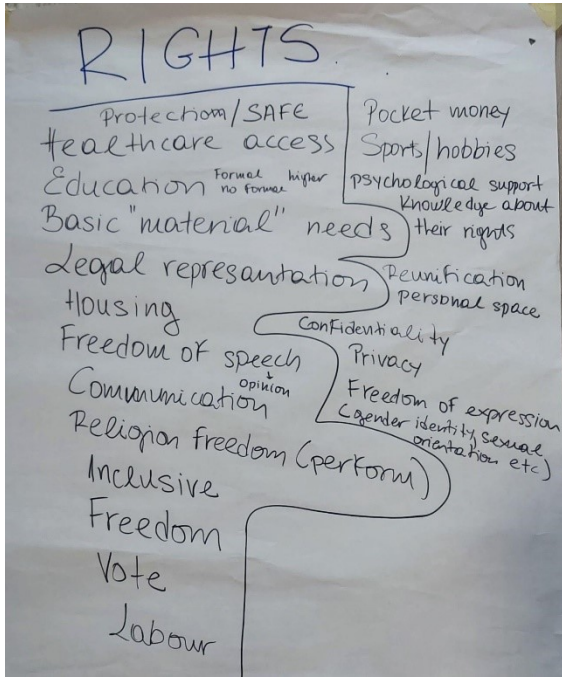 RIGHTS
Protection/SAFE
Healthcare access
Education Formal higher
no formal
Basic "material" needs
Legal represantation
Housing
Freedom of speech
+ opinion
Communication
Religion freedom (perform)
Inclusive
Freedom
Vote
Labour
Pocket money
Sports/hobbies
psychological support
Knowledge about
their rights
Reunification
personal space
Confidentiality
Privacy
Freedom of expression
(gender identity, sexual
orientation etc)